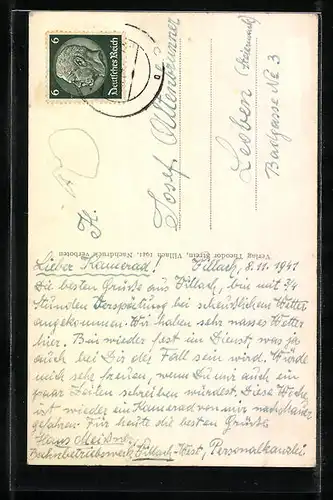 6 Deutsches Reich 6
H.
Josef Altenbrunner
Leoben (Steiermark)
Badgasse No 3
Verlag Theodor Strein, Villach, 1941. Nachdruck verboten
Villach, 8.11.1941
Lieber Kamerad!
Die besten Grüße aus Villach, bin mit 3/4
Stunden Verspätung bei scheußlichem Wetter
angekommen. Wir haben sehr nasses Wetter
hier. Bin wieder fest im Dienst, was ja
auch bei Dir der Fall sein wird. Würde
mich sehr freuen, wenn Du mir auch ein
paar Zeilen schreiben würdest. Diese Woche
ist wieder ein Kamerad von mir nachhause
gefahren. Für heute die besten Grüße
Hans
Bahnbetriebswerk Villach-West, Personalkanzlei